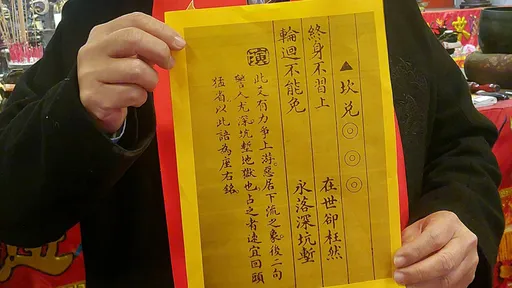 ▲坎兌◎◎◎
終身不習上 在世卻枉然
輪迴不能免 永落深坑塹
演 此爻有力爭上游惡居下流之象後二句
警人尤深坑塹地獄也占之者速宜回頭
猛省以此語為座右銘